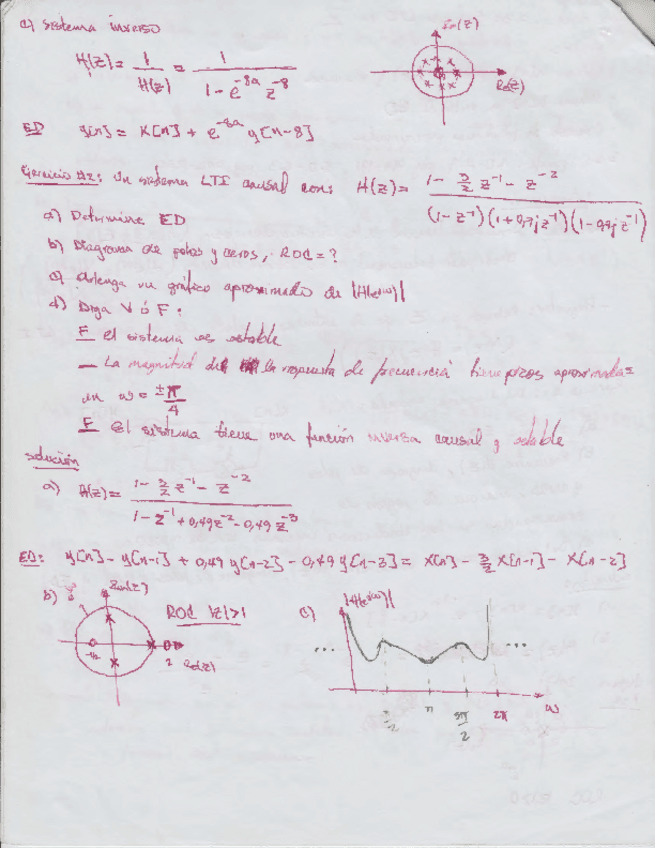 c) sistema inverso
Im(z)
Hᵢ(z) = 1/H(z) = 1/(1 - e^{-8a} z^{-8})
Re(z)
ED y[n] = x[n] + e^{-8a} y[n-8]
Ejercicio #2: Un sistema LTI causal con: H(z) = (1 - 3/2 z^{-1} - z^{-2})/((1 - z^{-1})(1 + 0,7j z^{-1})(1 - 0,7j z^{-1}))
a) Determine ED
b) Diagrama de polos y ceros, ROC = ?
c) Obtenga un gráfico aproximado de |H(e^{jω})|
d) Diga V ó F:
F El sistema es estable
— La magnitud de la respuesta de frecuencia tiene picos aproximada=
en ω = ±π/4
F El sistema tiene una función inversa causal y estable
Solución
a) H(z) = (1 - 3/2 z^{-1} - z^{-2})/(1 - z^{-1} + 0,49 z^{-2} - 0,49 z^{-3})
ED: y[n] - y[n-1] + 0,49 y[n-2] - 0,49 y[n-3] = x[n] - 3/2 x[n-1] - x[n-2]
b) Im(z)
ROC |z|>1
-1/2 2 Re(z)
c) |H(e^{jω})|
... ...
π/2 π 3π/2 2π ω